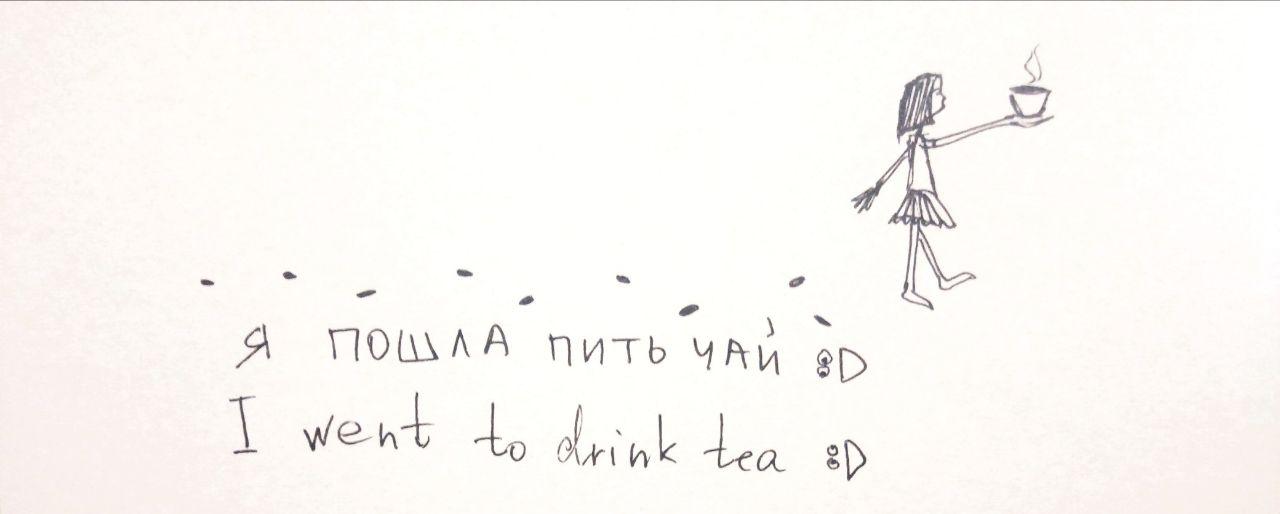 Я ПОШЛА ПИТЬ ЧАЙ :D
I went to drink tea :D